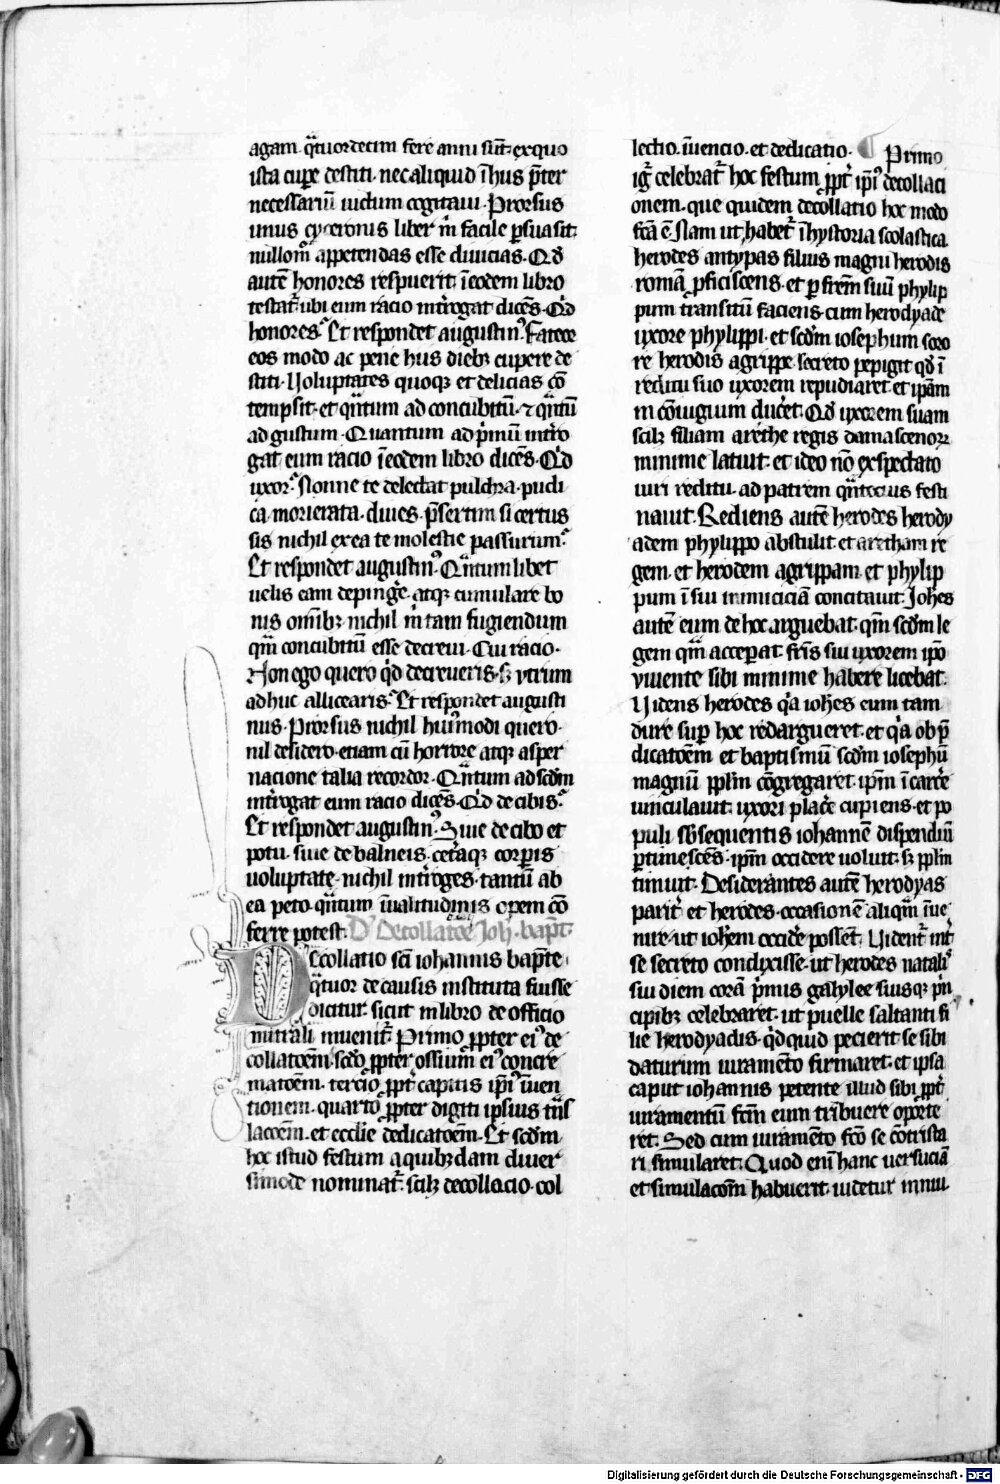 agam. q̃tuordecim fere anni sũt exquo
ista cupe destiti. nec aliquid ĩ hus p̃ter
necessariũ victum cogitaui. Prorsus
unus cyceronis liber m̃ facile psuasit
nullom̃ appetendas esse diuicias. Qd̃
autẽ honores respuerit ĩ eodem libro
testat̃ ubi eum racio int̃rogat dicẽs. Q̃d
honores. Et respondet augustinꝰ. Fateor
eos modo ac pene hiis diebꝫ cupere de
stiti. Voluptates quoqꝫ et delicias cõ
tempsit. et q̃ntum ad concubitũ. ⁊ q̃ntũ
ad gustum. Quantum ad p̃mũ int̃ro
gat eum racio ĩ eodem libro dicẽs. Q̃d
uxor. Nonne te delectat pulchra. pudi
ca. morierata. diues. p̃sertim si certus
sis nichil ex ea te molestie passurum.
Et respondet augustinꝰ. Q̃ntum libet
uelis eam depingẽ. atqꝫ cumulare bo
nis om̃ibꝫ nichil m̃ tam fugiendum
qm̃ concubitũ esse decreui. Cui racio.
Non ego quero q̃d decreueris. sꝫ vtrum
adhuc alliciearis. Et respondet augusti
nus. Prorsus nichil huiꝰmodi quero.
nil desidero. etiam cũ horrore atqꝫ asper
nacione talia recordor. Q̃ntum ad scd̃m
int̃rogat eum racio dicẽs. Q̃d de cibis.
Et respondet augustinꝰ. Siue de cibo et
potu. siue de balneis. cet̃aqꝫ corpis
voluptate. nichil int̃roges. tantũ ab
ea peto. q̃ntum ĩ ualitudinis opem cõ
ferre potest. De decollatõe Joh. bapt̃.
Decollatio sc̃i iohannis bapt̃e
q̃tuor de causis instituta fuisse
dicitur. sicut in libro de officio
mitrali inuenit̃. Primo ꝓpter eiꝰ de
collatõem. scd̃o ꝓpter ossium eiꝰ concre
matõem. tercio ꝓpt̃ capitis ip̃iꝰ inuen
tionem. quarto ꝓpter digiti ipsius t̃ns
lacõem. et ecclie dedicatõem. Et scd̃m
hoc istud festum a quibꝫdam diuer
simode nominat̃. scilꝫ decollacio. col
lectio. ĩuencio. et dedicatio. Primo
ig̃ celebrat̃ hoc festum ꝓpt̃ ip̃iꝰ decollaci
onem. que quidem decollatio hoc modo
fc̃a ẽ. Nam ut habet̃ ĩ hystoria scolastica.
herodes antypas filius magni herodis
romã ꝓficiscens. et p frẽm suũ phylip
pum transitũ faciens. cum herodyade
uxore phylippi. et scd̃m iosephum soro
re herodis agrippe. secreto pepigit qd̃ ĩ
reditu suo uxorem repudiaret. et ip̃am
in cõiugium duc̃et. Qd̃ uxorem suam
scilꝫ filiam arethe regis damascenorꝫ
minime latuit. et ideo nõ exspectato
uiri reditu. ad patrem q̃ntocius festi
nauit. Rediens autẽ herodes herody
adem phylippo abstulit. et aretham re
gem. et herodem agrippam. et phylip
pum ĩ sui inimiciciã concitauit. Joh̃es
autẽ eum de hoc arguebat. qm̃ scd̃m le
gem qm̃ acceperat fr̃is sui uxorem ip̃o
viuente sibi minime habere licebat.
Videns herodes q̃a ioh̃es eum tam
dure sup hoc redargueret. et q̃a ob p̃
dicatõem et baptismũ scd̃m iosephũ
magnũ ppl̃m cõgregaret. ip̃m ĩ carc̃e
uinculauit. uxori plac̃e cupiens. et po
puli sbsequentis iohannẽ dispendiũ
ptimescẽs. ip̃m occidere uoluit. sꝫ ppl̃m
timuit. Desiderantes autẽ herodyas
parit̃ et herodes. occasionẽ aliq̃m ĩue
nire. ut ioh̃em occid̃e possent. Vident̃ int̃
se secreto condixisse. ut herodes natal'
sui diem corã p̃mis galylee suisqꝫ p̃n
cipibꝫ celebraret. ut puelle saltanti fi
lie herodyadis. q̃dquid pecierit se sibi
daturum iuramẽto firmaret. et ipsa
caput iohannis petente illud sibi ꝓpt̃
iuramentũ fc̃m eum tribuere oporte
ret. Sed cum iuramẽto fc̃o se cõtrista
ri simularet. Quod eni hanc uersuciã
et simulacõm habuerit. uidetur innui.
Digitalisierung gefördert durch die Deutsche Forschungsgemeinschaft - DFG